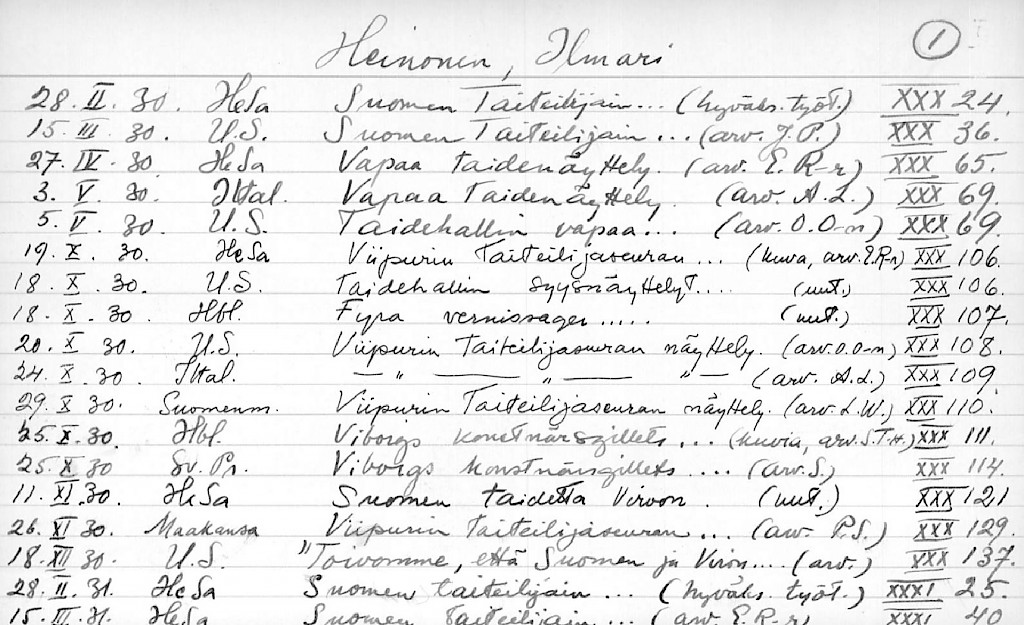 Heinonen, Ilmari 1
28. II. 30. HeSa Suomen Taiteilijain... (hyväks. työt.) XXX 24.
15. III. 30. U.S. Suomen Taiteilijain ... (arv. J.P.) XXX 36.
27. IV. 30 HeSa Vapaa taidenäyttely. (arv. E. R-r) XXX 65.
3. V. 30. Ittal. Vapaa Taidenäyttely. (arv. A.L.) XXX 69.
5. V. 30. U.S. Taidehallin vapaa... (arv. O.O-n) XXX 69.
19. X. 30. HeSa Viipurin Taiteilijaseuran ... (kuva, arv. E.R-r) XXX 106.
18. X. 30. U.S. Taidehallin syysnäyttelyt.... (uut.) XXX 106.
18. X. 30. Hbl. Fyra vernissager..... (uut.) XXX 107.
20. X 30. U.S. Viipurin Taiteilijaseuran näyttely. (arv. O.O-n) XXX 108.
24. X. 30 Ittal. — " — — " — " — (arv. A.L.) XXX 109
29. X 30. Suomenm. Viipurin Taiteilijaseuran näyttely. (arv. L.W.) XXX 110.
25. X. 30. Hbl. Viborgs konstnärsgillets ... (kuvia, arv. S.T.H.) XXX 111.
25. X 30 Sv. Pr. Viborgs konstnärsgillets .... (arv. S.) XXX 114.
11. XI. 30. HeSa Suomen taidetta Viroon. (uut.) XXX 121
26. XI 30. Maakansa Viipurin Taiteilijaseuran... (arv. P.S.) XXX 129.
18. XII 30. U.S. "Toivomme, että Suomen ja Viron.... (arv.) XXX 137.
28. II. 31. HeSa Suomen taiteilijain ... (hyväks. työt.) XXXI 25.
15. III. 31. HeSa Suomen taiteilijain ... (arv. E. R-r) XXXI 40